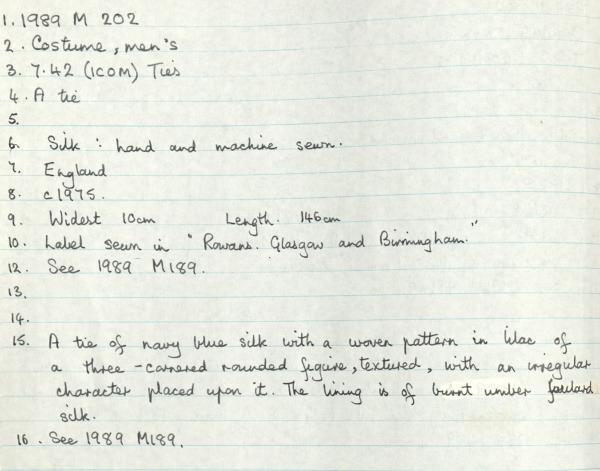 1. 1989 M 202
2. Costume, men's
3. 7.42 (ICOM) Ties
4. A tie
5.
6. Silk : hand and machine sewn.
7. England
8. c1975.
9. Widest 10cm Length. 146cm
10. Label sewn in "Rowans. Glasgow and Birmingham."
12. See 1989 M189.
13.
14.
15. A tie of navy blue silk with a woven pattern in lilac of
a three-cornered rounded figure, textured, with an irregular
character placed upon it. The lining is of burnt umber foulard
silk.
16. See 1989 M189.